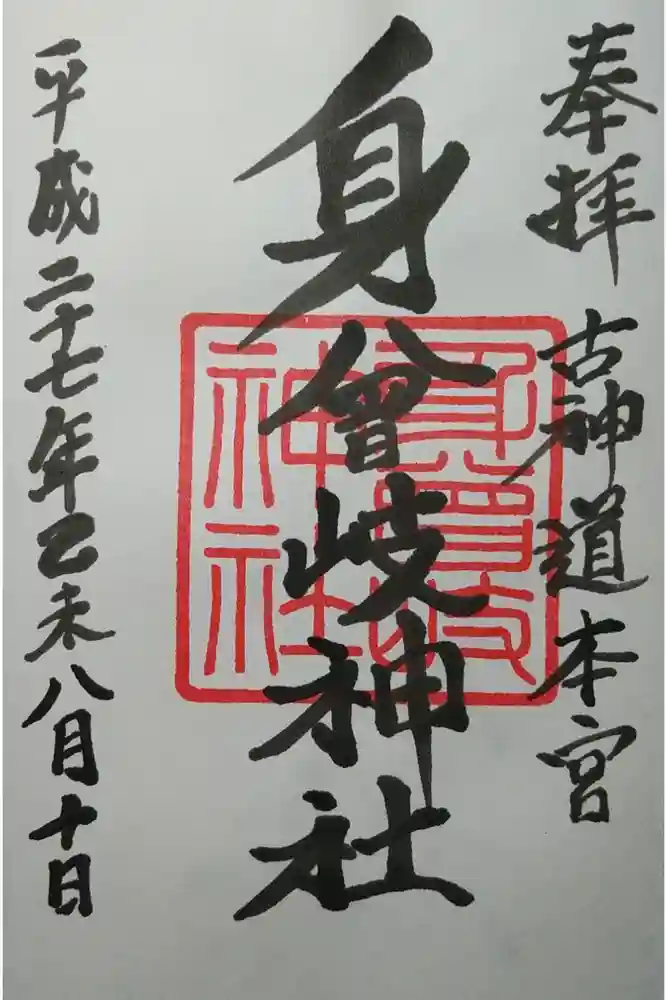 奉拝 古神道本宮
身曾岐神社
身曾岐
神社
平成二十七年乙未八月十日